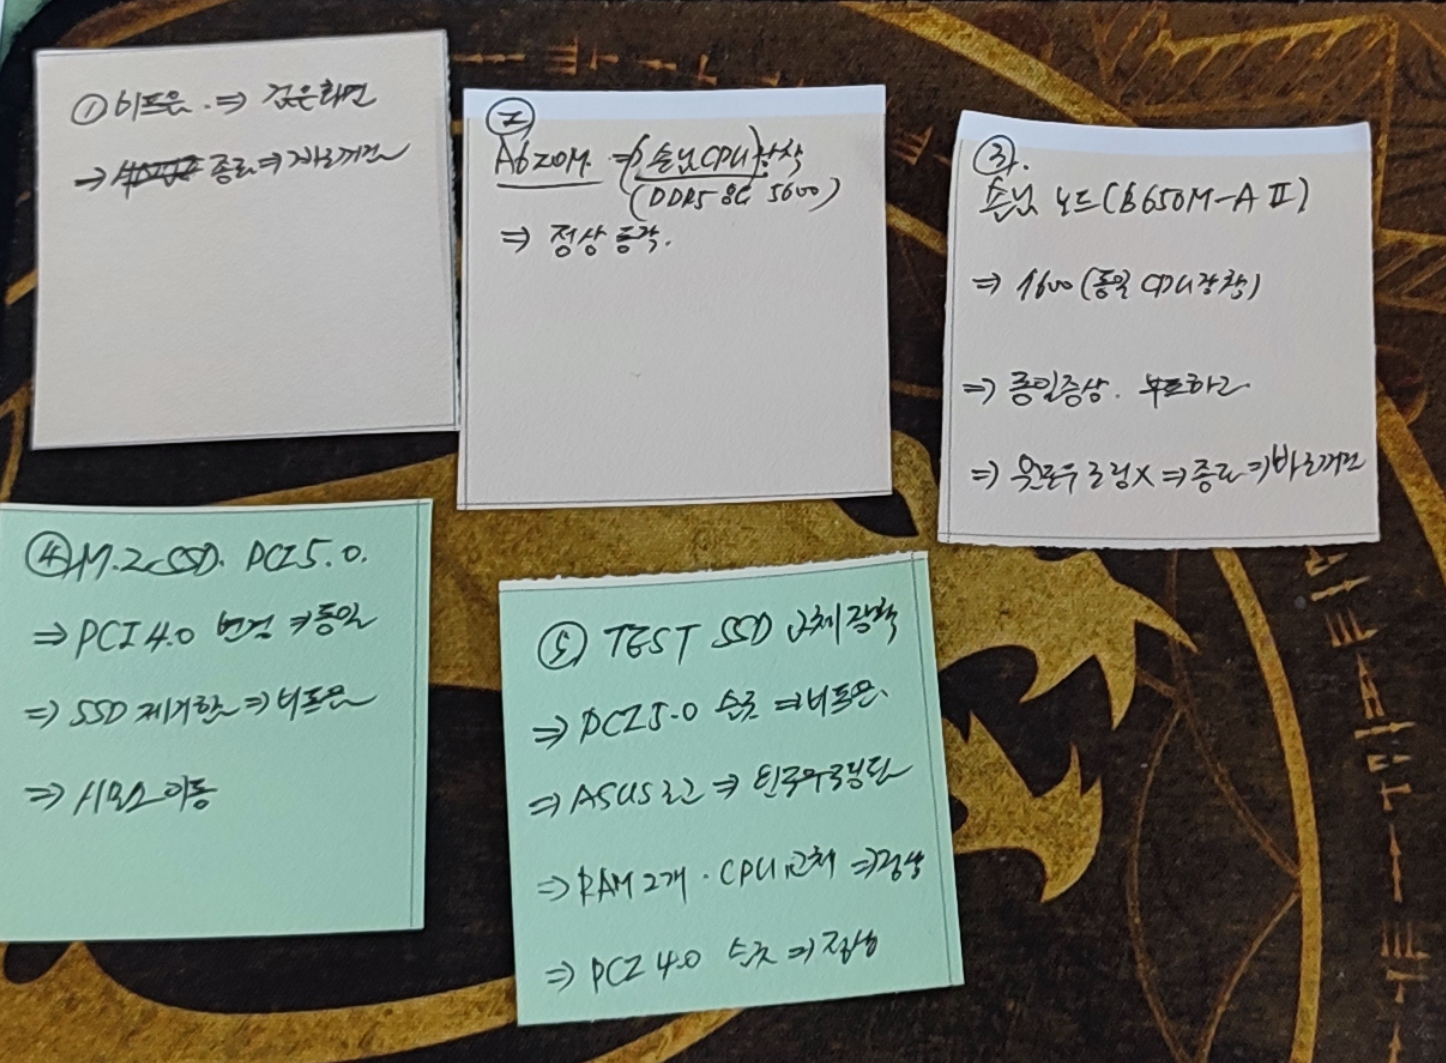 ① 비프음. ⇒ 검은화면
⇒ 종료 ⇒ 바로꺼짐
②
A620M. ⇒ (손님CPU)장착
(DDR5 8G 5600)
⇒ 정상동작.
③.
손님 보드(B650M-A II)
⇒ (동일 CPU장착)
⇒ 동일증상. 부트하고
⇒ 윈도우로딩X ⇒ 종료 ⇒ 바로꺼짐
④ M.2 SSD. PCI 5.0.
⇒ PCI 4.0 변경 ⇒ 동일
⇒ SSD 제거한 ⇒ 비프음
⇒ 바이오스이동
⑤ TEST SSD 교체장착
⇒ PCI 5.0 슬롯 ⇒ 비프음.
⇒ ASUS로고 ⇒ 윈도우로딩
⇒ RAM 2개. CPU 교체 ⇒ 정상
⇒ PCI 4.0 슬롯 ⇒ 정상